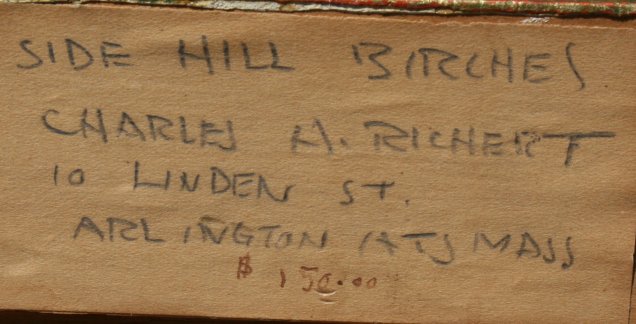 SIDE HILL BIRCHES
CHARLES H. RICHERT
10 LINDEN ST.
ARLINGTON HTS MASS
$ 150.00